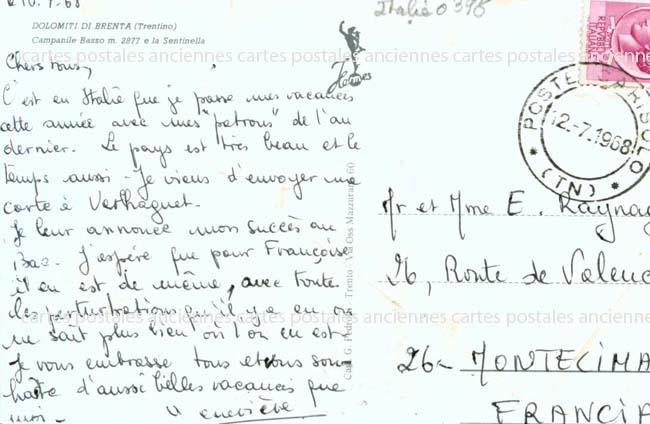 10.7.68
DOLOMITI DI BRENTA (Trentino)
Campanile Basso m. 2877 e la Sentinella
Italie 0398
Hermes
Chers tous,
C'est en Italie que je passe mes vacances
cette année avec mes "patrons" de l'an
dernier. Le pays est très beau et le
temps aussi. Je viens d'envoyer une
carte à Verlhaguet.
Je leur annonce mon succès au
Bac. J'espère que pour Françoise
il en est de même, avec toute
les perturbations qu'il y a eu on
ne sait plus bien où l'on en est.
Je vous embrasse tous et vous sou-
haite d'aussi belles vacances que
moi.
Via Oss Mazzurana 60
Trento
POSTE
12.-7.1968
(TN)
POSTE
REPUBBLICA
ITALIANA
Mr et Mme E. Rayna
26, Route de Valenc
26- MONTELIMA
FRANCIA
cartes postales anciennes cartes postales anciennes cartes postales anciennes